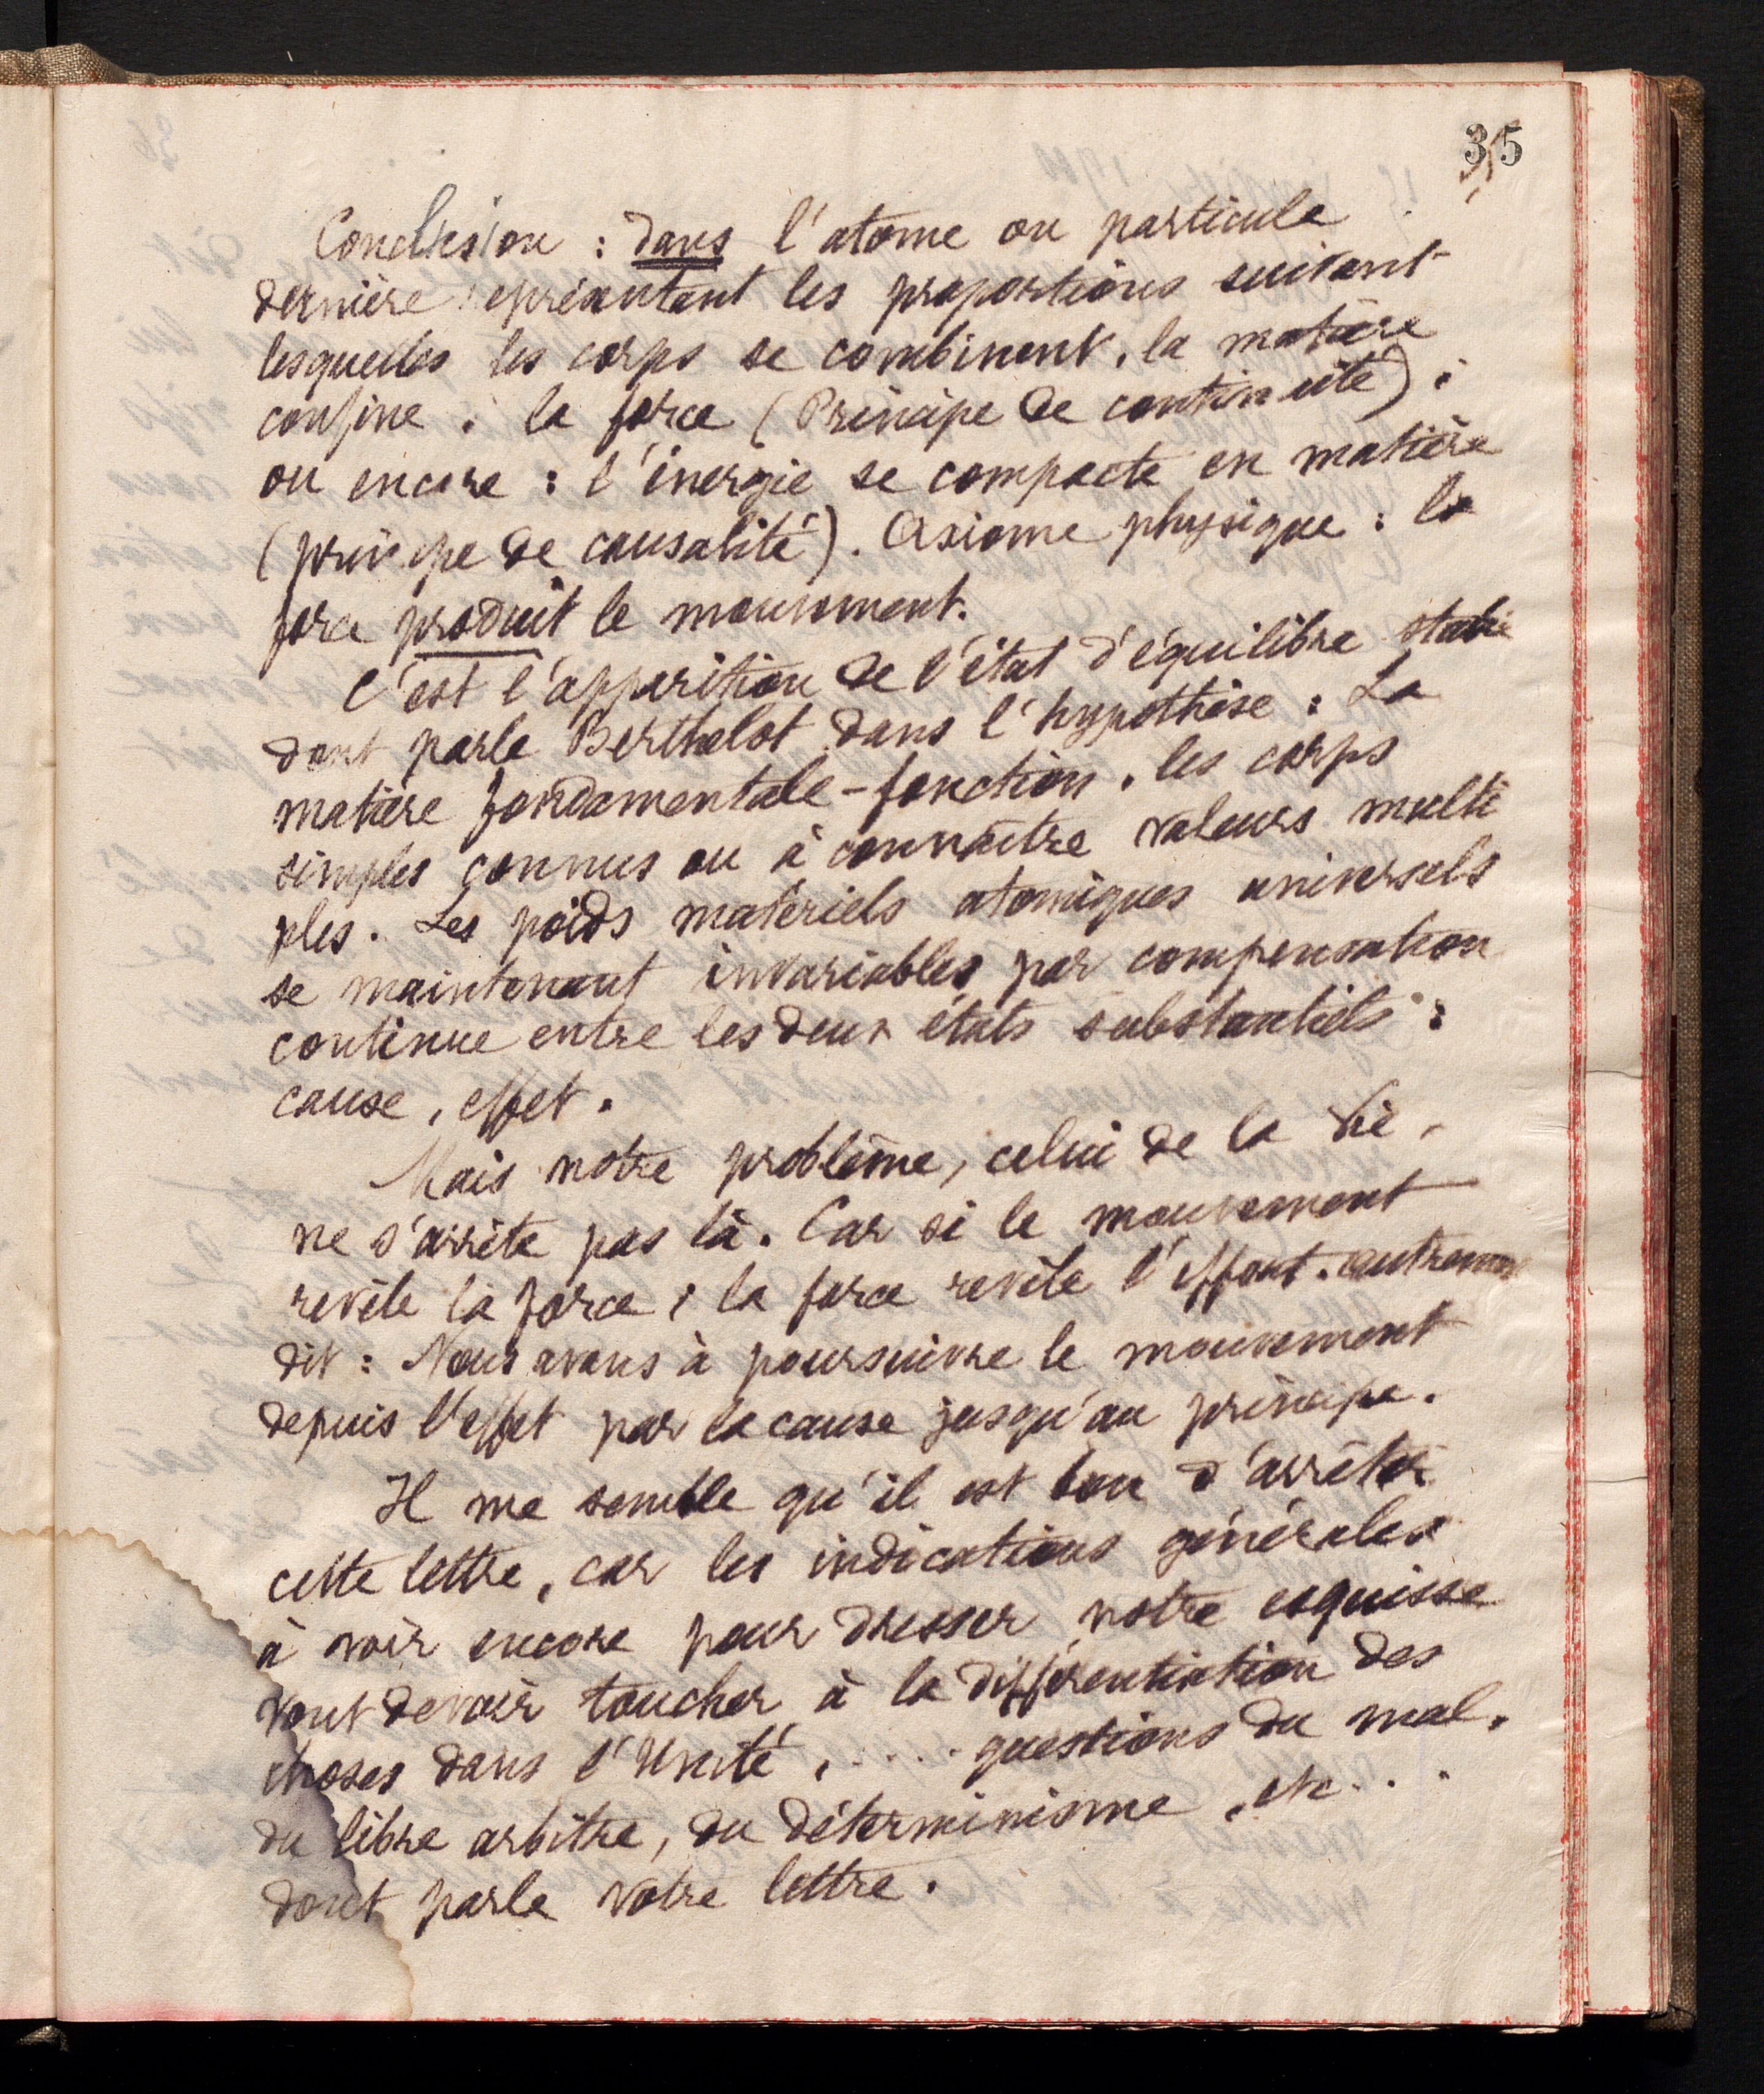 35
Conclusion : dans l'atome ou particule
dernière représentant les proportions suivant
lesquelles les corps se combinent, la matière
confine à la force (Principe de continuité) ;
ou encore : l'énergie se compacte en matière
(principe de causalité). Axiome physique : la
force produit le mouvement.
C'est l'apparition de l'état d'équilibre stable
dont parle Berthelot dans l'hypothèse : La
matière fondamentale - fonction, les corps
simples connus ou à connaître valeurs multi
ples. Les poids matériels atomiques universels
se maintenant invariables par compensation
continue entre les deux états substantiels :
cause, effet.
Mais notre problème, celui de la Vie,
ne s'arrête pas là. Car si le mouvement
révèle la force, la force révèle l'effort. autrement
dit : Nous avons à poursuivre le mouvement
depuis l'effet par la cause jusqu'au principe.
Il me semble qu'il est bon d'arrêter
cette lettre, car les indications générales
à voir encore pour dresser notre esquisse
vont devoir toucher à la différentiation des
choses dans l'Unité, .... questions du mal,
du libre arbitre, du déterminisme, etc...
dont parle votre lettre.